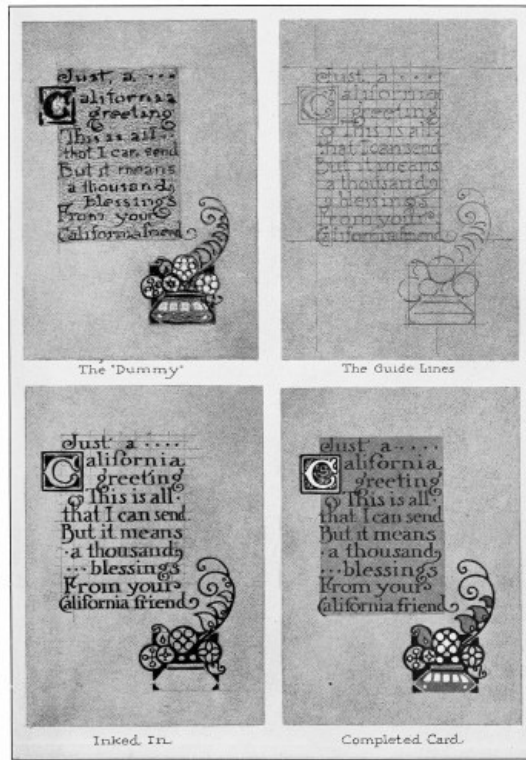 Just a ...
California
greeting
This is all..
that I can send
But it means
a thousand
blessings
From your
California friend
The "Dummy"
Just a ...
California
greeting
This is all
that I can send
But it means
a thousand
blessings
From your
California friend
The Guide Lines
Just a ....
California
greeting
This is all.
that I can send.
But it means
.a thousand
...blessings
From your
California friend
Inked In
Just a ....
California
greeting
This is all.
that I can send
But it means
.a thousand
...blessings
From your
California friend
Completed Card